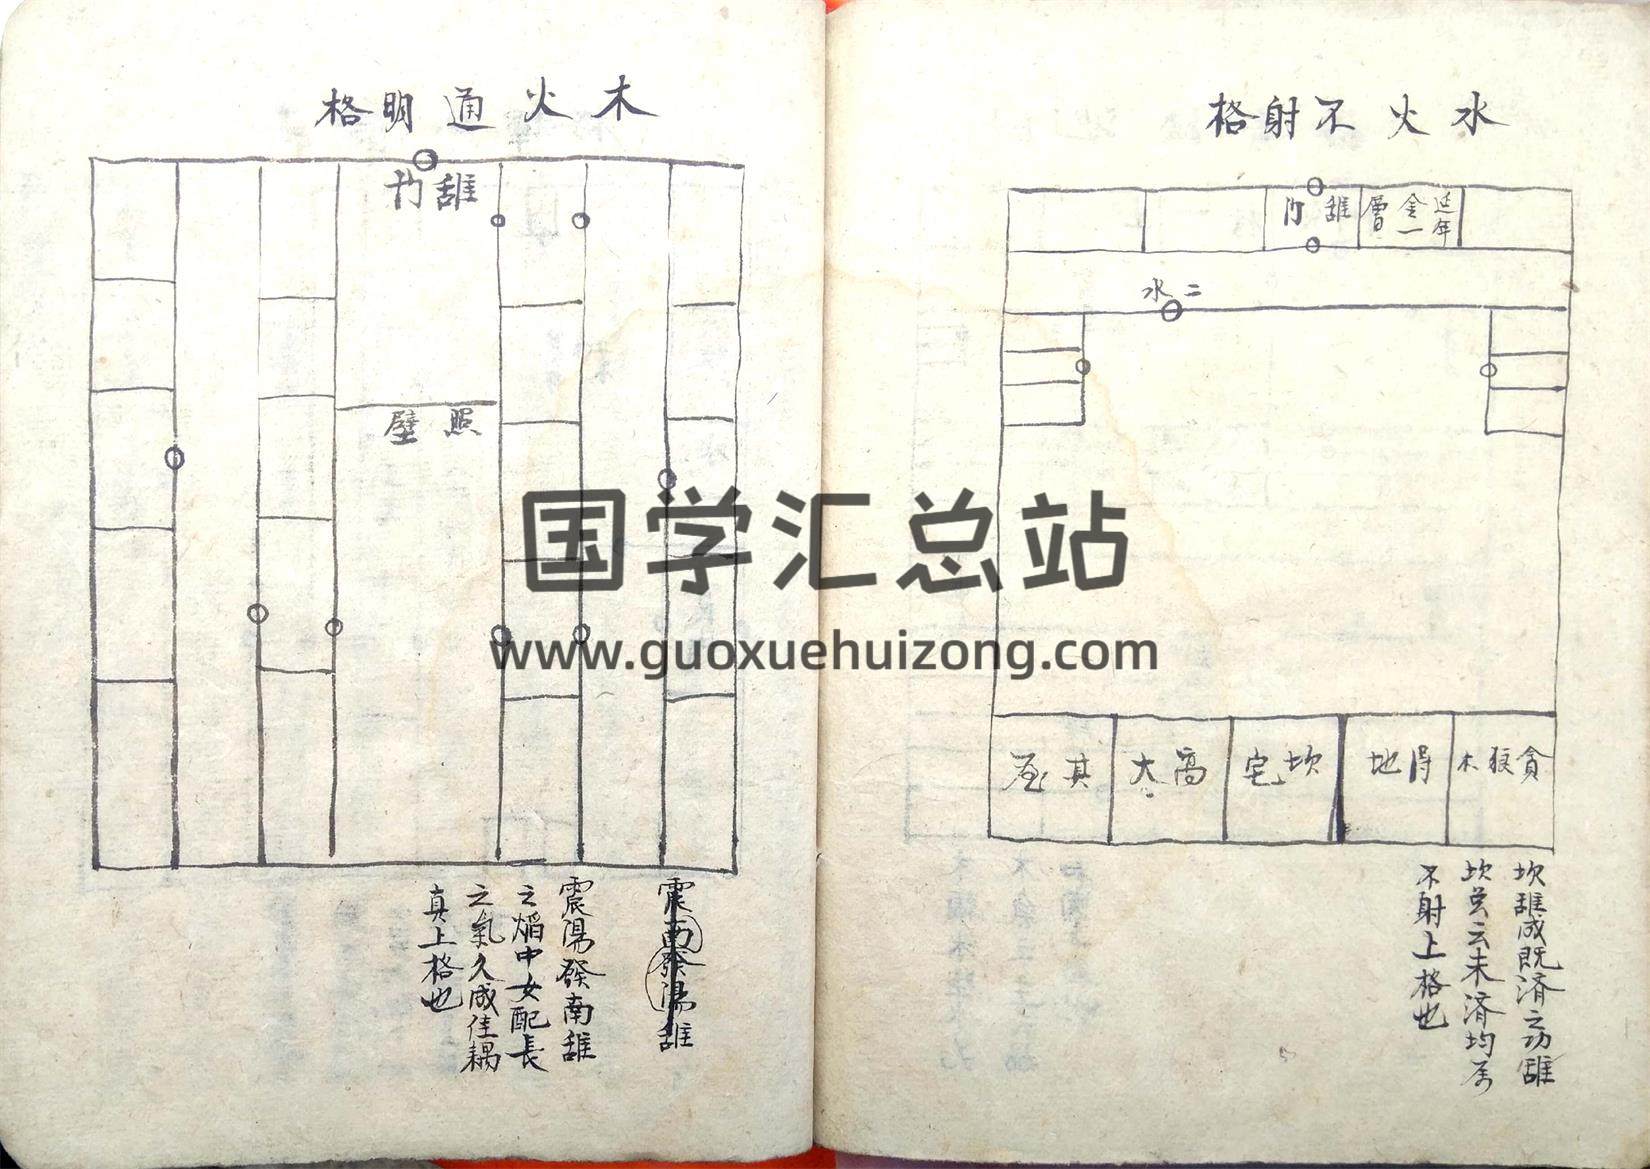 水火不射格
延年
金一
層
離門
二水
貪狼木
得地
坎宅
高大
其
坎離成既济之功離
坎 云未济均
不射上格也
木火通明格
離門
照壁
震南發陽離
震陽發南離
之焰中女配長
之氣久成佳耦
真上格也
国学汇总站
www.guoxuehuizong.com